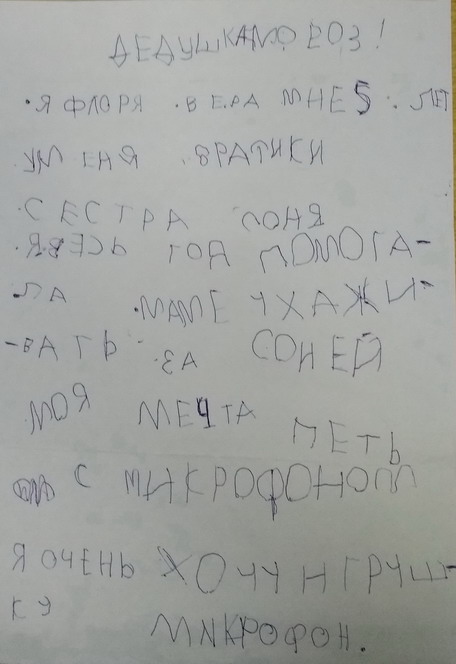 ДЕДУШКАМОРОЗ!
Я ФЛОРЯ ВЕРА МНЕ 5 ЛЕТ
УМЕНЯ БРАТИКИ
СЕСТРА СОНЯ
Я ВЕСЬ ГОД ПОМОГА-
ЛА МАМЕ УХАЖИ-
-ВАТЬ ЗА СОНЕЙ
МОЯ МЕЧТА
ПЕТЬ
С МИКРОФОНОМ
Я ОЧЕНЬ ХОЧУ ИГРУШ-
КУ
МИКРОФОН.